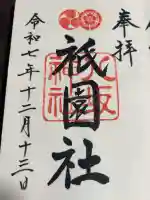 奉拝
祇園社
神社
令和七年十二月十三日